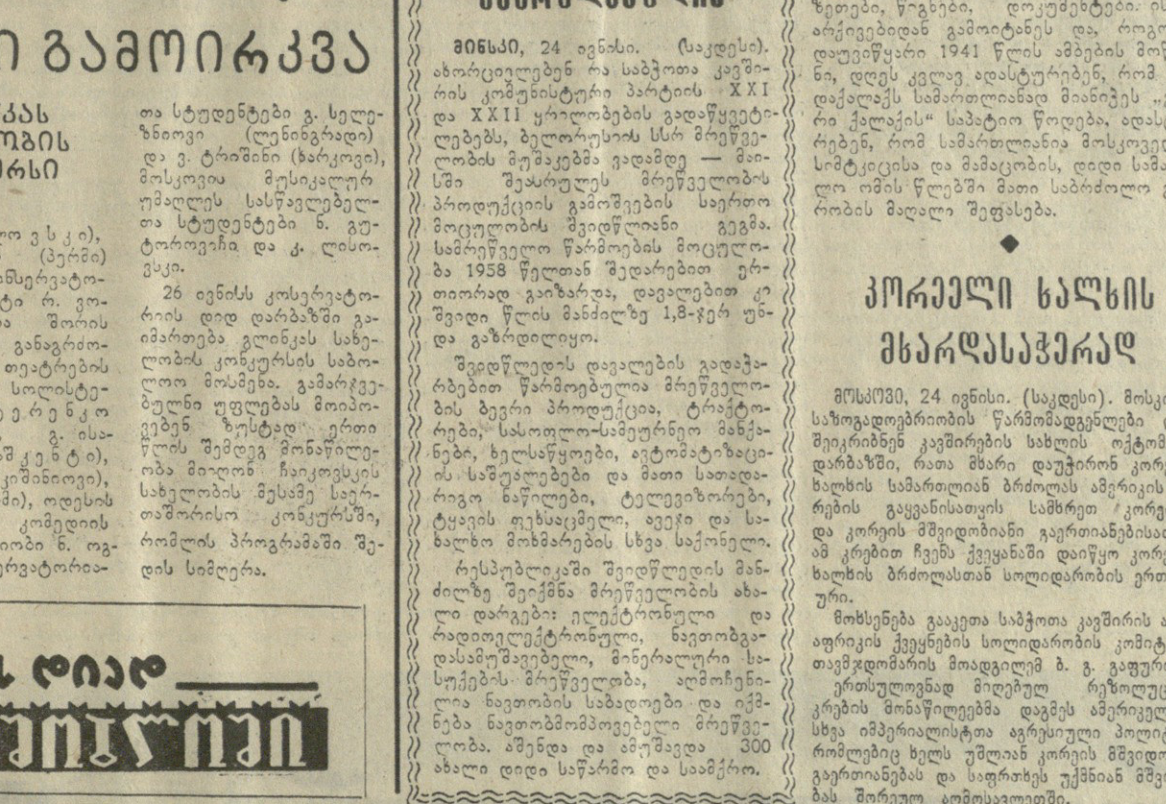 გამოირკვა
ლო ვ ს კ ი),
(პერმი)
ტი რ. ვო-
შორის
განაგრძო-
თეატრების
სოლისტე-
ე ე რ ე ნ კ ო
გ. ისა-
შ კ ე ნ ტ ი),
კიშინიოვი),
მი), ოდესის
კომედიის
იობი ნ. ოგ-
ერვატორია-
თა სტუდენტები გ. სელე-
ზნიოვი (ლენინგრადი)
და ვ. ტრიშინი (ხარკოვი),
მოსკოვის მუსიკალურ
უმაღლეს სასწავლებელ-
თა სტუდენტები ნ. გუ-
ტოროვიჩი და კ. ლისო-
ვსკი.
26 ივნისს კოსერვატო-
რიის დიდ დარბაზში გა-
იმართება გლინკას სახე-
ლობის კონკურსის საბო-
ლოო მოსმენა. გამარჯვე-
ბულნი უფლებას მოიპო-
ვებენ ზუსტად ერთი
წლის შემდეგ მონაწილე-
ობა მიიღონ ჩაიკოვსკის
სახელობის მესამე საერ-
თაშორისო კონკურსში,
რომლის პროგრამაში შე-
დის სიმღერა.
დიად
მინსკი, 24 ივნისი. (საკდესი).
ახორციელებენ რა საბჭოთა კავში-
რის კომუნისტური პარტიის XXI
და XXII ყრილობების გადაწყვეტი-
ლებებს, ბელორუსიის სსრ მრეწვე-
ლობის მუშაკებმა ვადამდე — მაი-
სში შეასრულეს მრეწველობის
პროდუქციის გამოშვების საერთო
მოცულობის შვიდწლიანი გეგმა.
სამრეწველო წარმოების მოცულო-
ბა 1958 წელთან შედარებით ერ-
თიორად გაიზარდა, დავალებით კი
შვიდი წლის მანძილზე 1,8-ჯერ უნ-
და გაზრდილიყო.
შვიდწლედის დავალების გადაჭა-
რბებით წარმოებულია მრეწველო-
ბის ბევრი პროდუქცია, ტრაქტო-
რები, სასოფლო-სამეურნეო მანქა-
ნები, ხელსაწყოები, ავტომატიზაცი-
ის საშუალებები და მათი სათადა-
რიგო ნაწილები, ტელევიზორები,
ტყავის ფეხსაცმელი, ავეჯი და სა-
ხალხო მოხმარების სხვა საქონელი.
რესპუბლიკაში შვიდწლედის მან-
ძილზე შეიქმნა მრეწველობის ახა-
ლი დარგები: ელექტრონული და
რადიოელექტრონული, ნავთობგა-
დასამუშავებელი, მინერალური სა-
სუქების მრეწველობა, აღმოჩენი-
ლია ნავთობის საბადოები და იქმ-
ნება ნავთობმომპოვებელი მრეწვე-
ლობა. აშენდა და ამუშავდა 300
ახალი დიდი საწარმო და საამქრო.
ზეთები, წიგნები, დოკუმენტები.
არქივებიდან გამოიტანეს და,
დაუვიწყარი 1941 წლის ამბების
ნი, დღეს კვლავ ადასტურებენ, რომ
დაქალაქს სამართლიანად მიანიჭეს
რი ქალაქის“ საპატიო წოდება,
რებენ, რომ სამართლიანია
სიმტკიცისა და მამაცობის, დიდი
ლო ომის წლებში მათი საბრძოლო
რობის მაღალი შეფასება.
კორეელი ხალხის
მხარდასაჭერად
მოსკოვი, 24 ივნისი. (საკდესი).
საზოგადოებრიობის წარმომადგენლები
შეიკრიბნენ კავშირების სახლის
დარბაზში, რათა მხარი დაუჭირონ
ხალხის სამართლიან ბრძოლას
რების გაყვანისათვის სამხრეთ
და კორეის მშვიდობიანი
ამ კრებით ჩვენს ქვეყანაში დაიწყო
ხალხის ბრძოლასთან სოლიდარობის
ური.
მოხსენება გააკეთა საბჭოთა კავშირის
აფრიკის ქვეყნების სოლიდარობის
თავმჯდომარის მოადგილემ ბ. გ.
ერთსულოვნად მიღებულ
კრების მონაწილეებმა დაგმეს
სხვა იმპერიალისტთა აგრესიული
რომლებიც ხელს უშლიან კორეის
გაერთიანებას და საფრთხეს უქმნიან
ბას შორეულ აღმოსავლეთში.